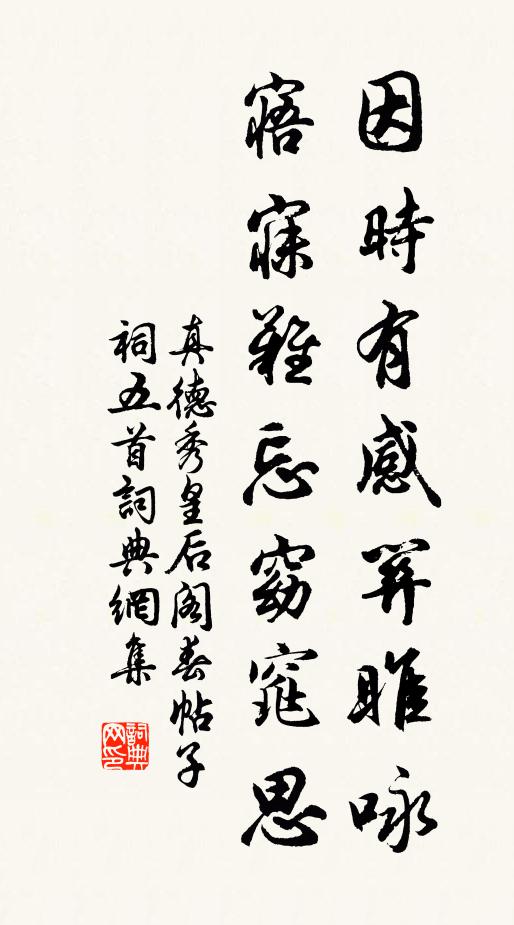 因時有感關雎咏
寤寐難忘窈窕思
真德秀皇后閣春帖子
祠五首詞典網集
詞典
网印